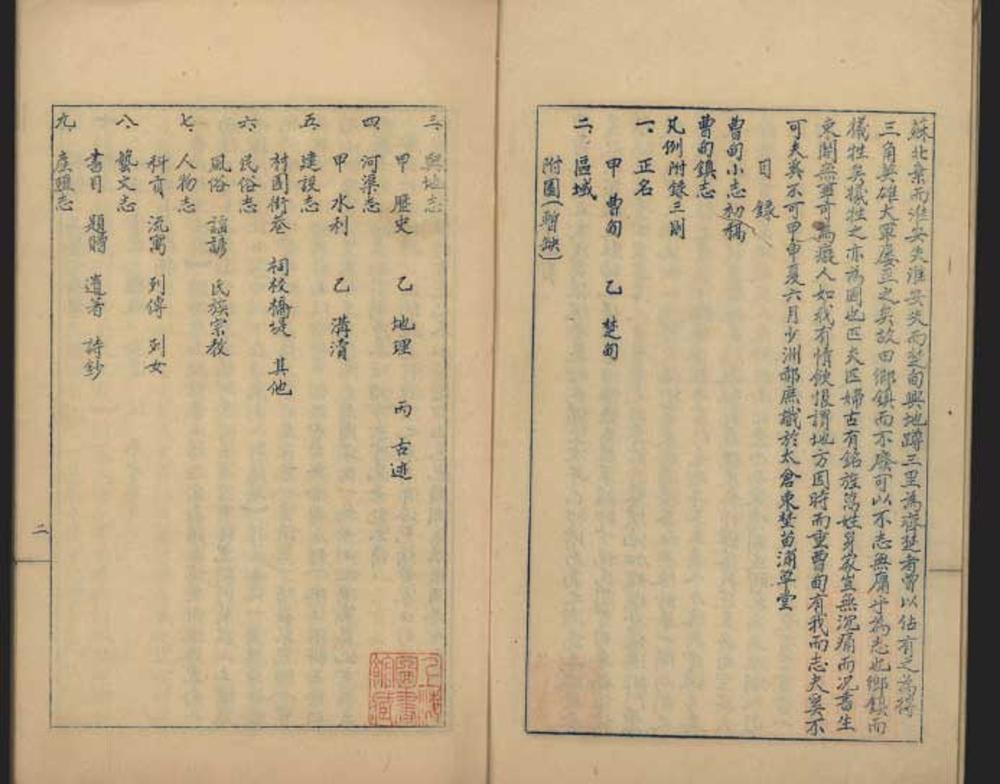 蘇北棄而淮安失淮安失而楚甸與地蹲三里為齊楚者曾以佔有之為得
三角英雄大軍屢至之矣故田鄉鎮而不廢可以不志無庸乎為志也鄉鎮而
犧牲矣犧牲之亦為國也匹夫匹婦古有銘旌篙姓身家豈無沉痛而况書生
東閣無事可為癡人如我有情飲恨謂地方因時而重曹甸有我而志夫奚不
可夫奚不可甲申夏六月少洲郝庶識於太倉東埜苗浦草堂
目錄
曹甸小志初稿
曹甸鎮志
凡例附錄三則
一、正名
甲 曹甸 乙 楚甸
二、區域
附圖(暫缺)
三、輿地志
甲 歷史 乙 地理 丙 古迹
四、河渠志
甲 水利 乙 溝瀆
五、建設志
村圍街巷 祠校橋堤 其他
六、民俗志
風俗 謡諺 氏族宗教
七、人物志
科貢 流寓 列傳 列女
八、藝文志
書目 題贈 遺著 詩鈔
九、產殖志
二
上海圖書館藏